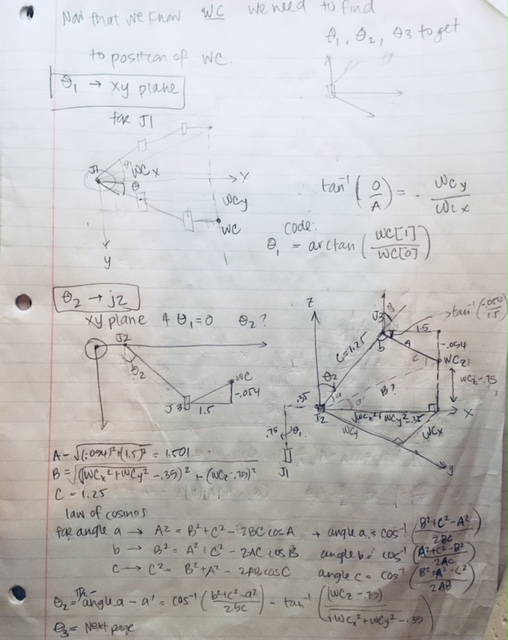 Now that we know WC we need to find
θ1, θ2, θ3 to get
to position of WC.
θ1 → xy plane
for J1
J1
WCx
θ
Y
WCy
WC
y
tan⁻¹(O/A) = WCy/WCx
code:
θ1 = arctan(WC[1]/WC[0])
θ2 → j2
xy plane if θ1=0 θ2?
J2
θ2
J3
WC
-.054
1.5
Z
J3
tan⁻¹(-.054/1.5)
1.5
-.054
C=1.25
A
b
c
WCz
B?
θ2
a
a'
WCz-.75
.35
J2
√WCx²+WCy²-.35
X
.75
θ1
WCy
WCx
y
J1
A = √(.054)²+(1.5)² = 1.501
B = √(√WCx²+WCy² - .35)² + (WCz-.75)²
C = 1.25
law of cosines
for angle a → A² = B²+C² - 2BC cosA → angle a = cos⁻¹(B²+C²-A²/2BC)
b → B² = A²+C² - 2AC cosB angle b = cos⁻¹(A²+C²-B²/2AC)
c → C² = B²+A² - 2AB cosC angle c = cos⁻¹(B²+A²-C²/2AB)
θ2 = angle a - a' = cos⁻¹(b²+c²-a²/2bc) - tan⁻¹((WCz-.75)/√WCx²+WCy²-.35)
θ3 = Next page